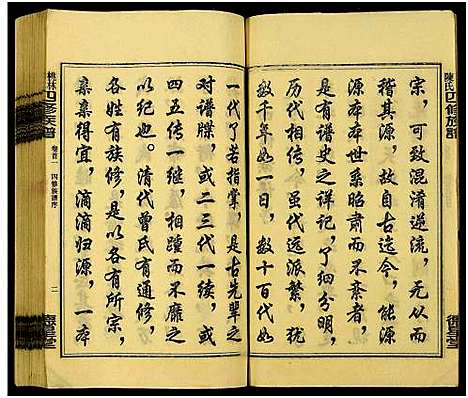 陳氏四修族譜
宗，可致混淆逆流，无从而
稽其源，大哉自古迄今，能源
源本本世系昭肃而不紊者，
是有谱史之详记，了细分明，
历代相传，虽代远派繁，犹
数千年如一日，数十百代如
一代了若指掌，是古先辈之
对谱牒，或二三代一续，或
四五传一继，相踵而不靡之
以纪也。清代曾氏有通修，
各姓有族修，是以各有所宗，
亲亲得宜，滴滴归源，一本
桃林四修族譜
卷首一
四修族譜序
二